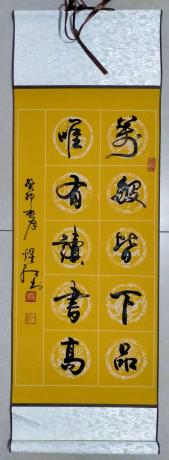 萬般皆下品
唯有讀書高
癸卯